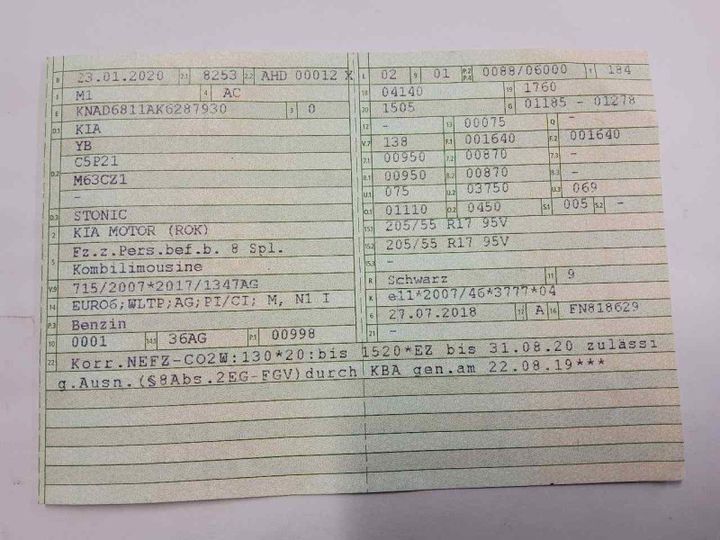 B 23.01.2020 2.1 8253 2.2 AHD 00012 X
J M1 4 AC
E KNAD6811AK6287930 3 0
D.1 KIA
YB
C5P21
D.2 M63CZ1
-
D.3 STONIC
2 KIA MOTOR (ROK)
Fz.z.Pers.bef.b. 8 Spl.
5 Kombilimousine
V.9 715/2007*2017/1347AG
14 EURO6;WLTP;AG;PI/CI; M, N1 I
P.3 Benzin
10 0001 14.1 36AG P.1 00998
L 02 9 01 P.2 P.4 0088/06000 T 184
18 04140 19 1760
20 1505 G 01185 - 01278
12 - 13 00075 Q -
V.7 138 F.1 001640 F.2 001640
7.1 00950 7.2 00870 7.3 -
8.1 00950 8.2 00870 8.3 -
U.1 075 U.2 03750 U.3 069
O.1 01110 O.2 0450 S.1 005 S.2 -
15.1 205/55 R17 95V
15.2 205/55 R17 95V
15.3 -
R Schwarz 11 9
K e11*2007/46*3777*04
6 27.07.2018 17 A 16 FN818629
21 -
22 Korr.NEFZ-CO2W:130*20:bis 1520*EZ bis 31.08.20 zulässi
g.Ausn.(§8Abs.2EG-FGV)durch KBA gen.am 22.08.19***